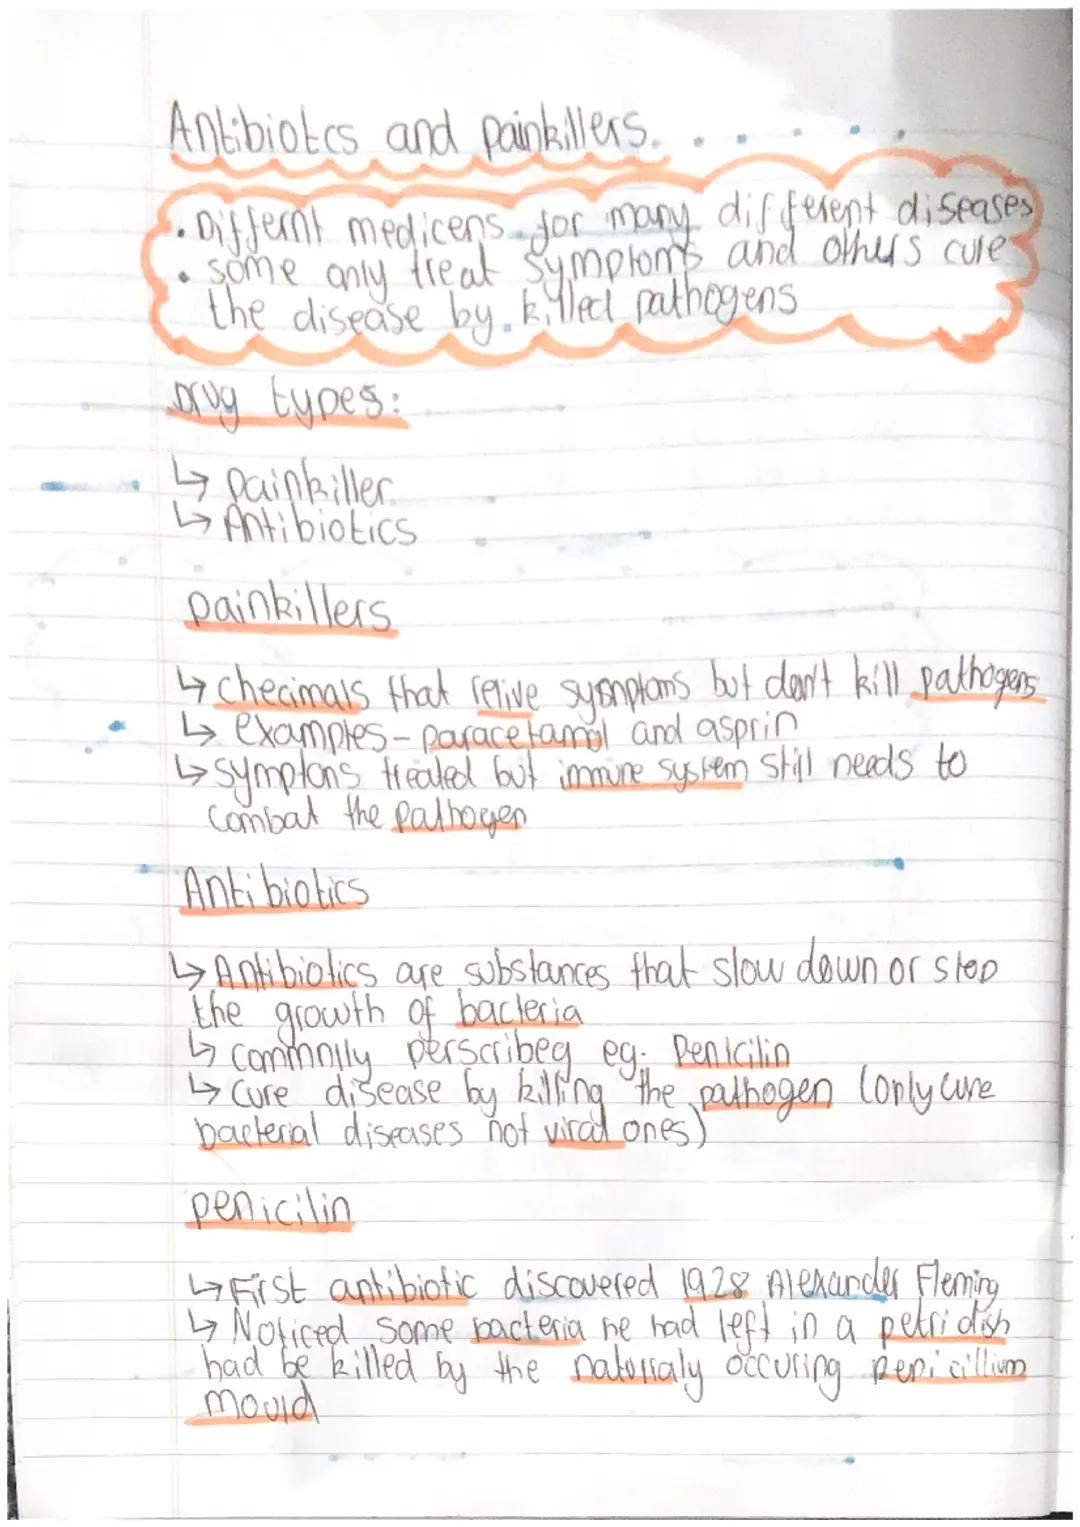 Antibiotcs and painkillers.
• Differnt medicens for many different diseases
• some only treat symptoms and others cure
the disease by killed pathogens
Drug types:
↳ painkiller
↳ Antibiotics
painkillers
↳ checimals that relive symptoms but don't kill pathogens
↳ examples - paracetamol and asprin
↳ symptons treated but immune system still needs to
combat the pathogen
Antibiotics
↳ Antibiotics are substances that slow down or stop
the growth of bacteria
↳ commnily perscribeg eg. Penicilin
↳ Cure disease by killing the pathogen (only cure
bacterial diseases not viral ones)
penicilin
↳ First antibiotic discovered 1928 Alexander Fleming
↳ Noticed some bacteria he had left in a petri dish
had be killed by the naturialy occuring penicillium
mould